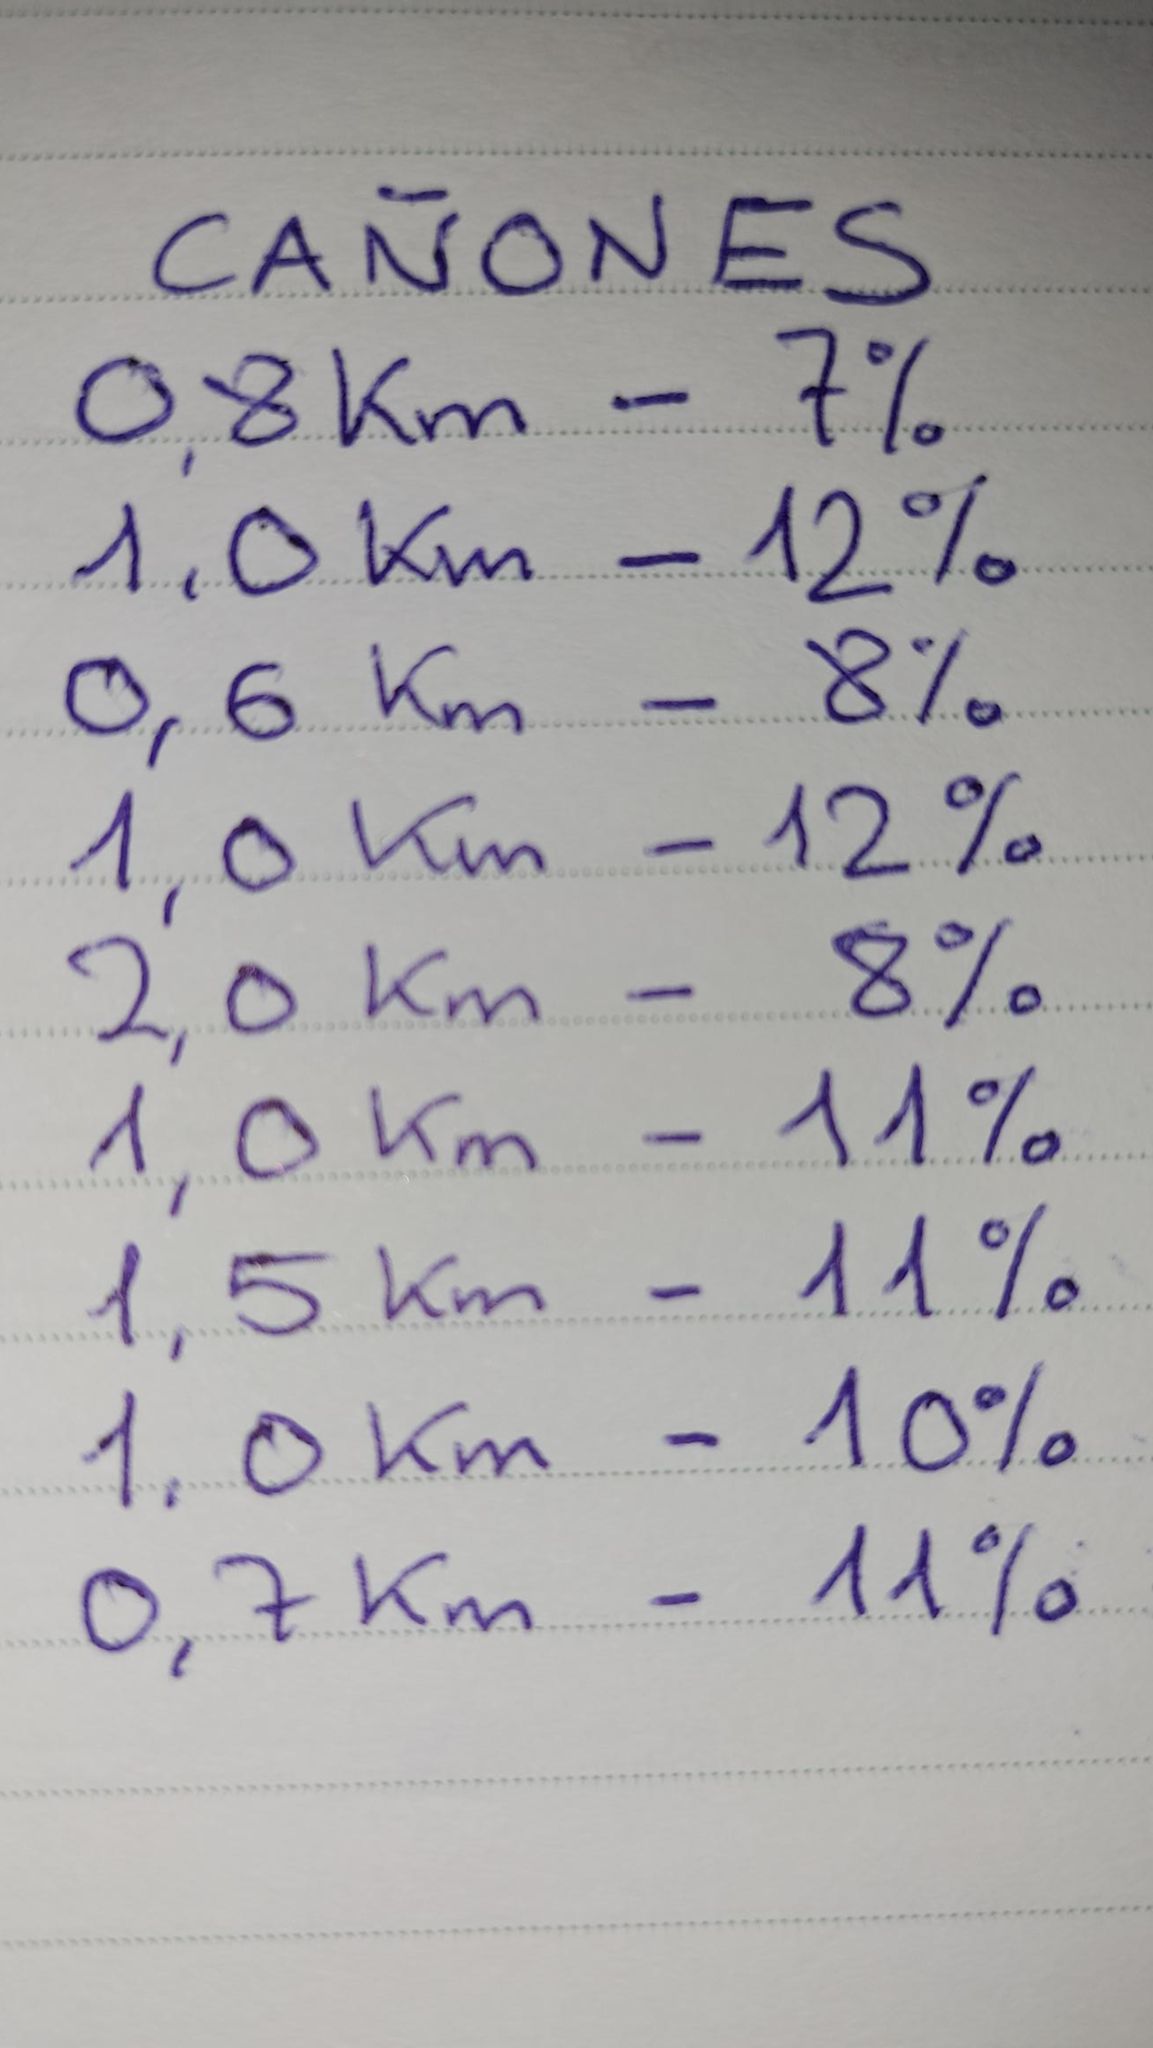 CAÑONES
0,8 Km - 7%
1,0 Km - 12%
0,6 Km - 8%
1,0 Km - 12%
2,0 Km - 8%
1,0 Km - 11%
1,5 Km - 11%
1,0 Km - 10%
0,7 Km - 11%